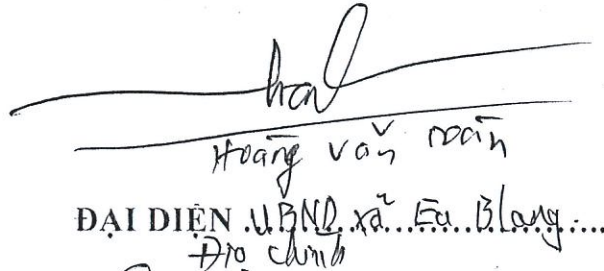 Hoàng Văn Toàn
ĐẠI DIỆN .UBND xã Ea Blang.....
Địa chính